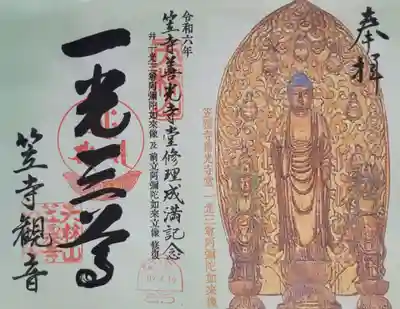 奉拝
令和六年
笠寺善光寺堂修理成満記念
弁 一光三尊阿彌陀如来像 及 前立阿彌陀如来立像 修復
一光三尊
笠寺観音
笠覆寺善光寺堂 一光三尊阿彌陀如来像